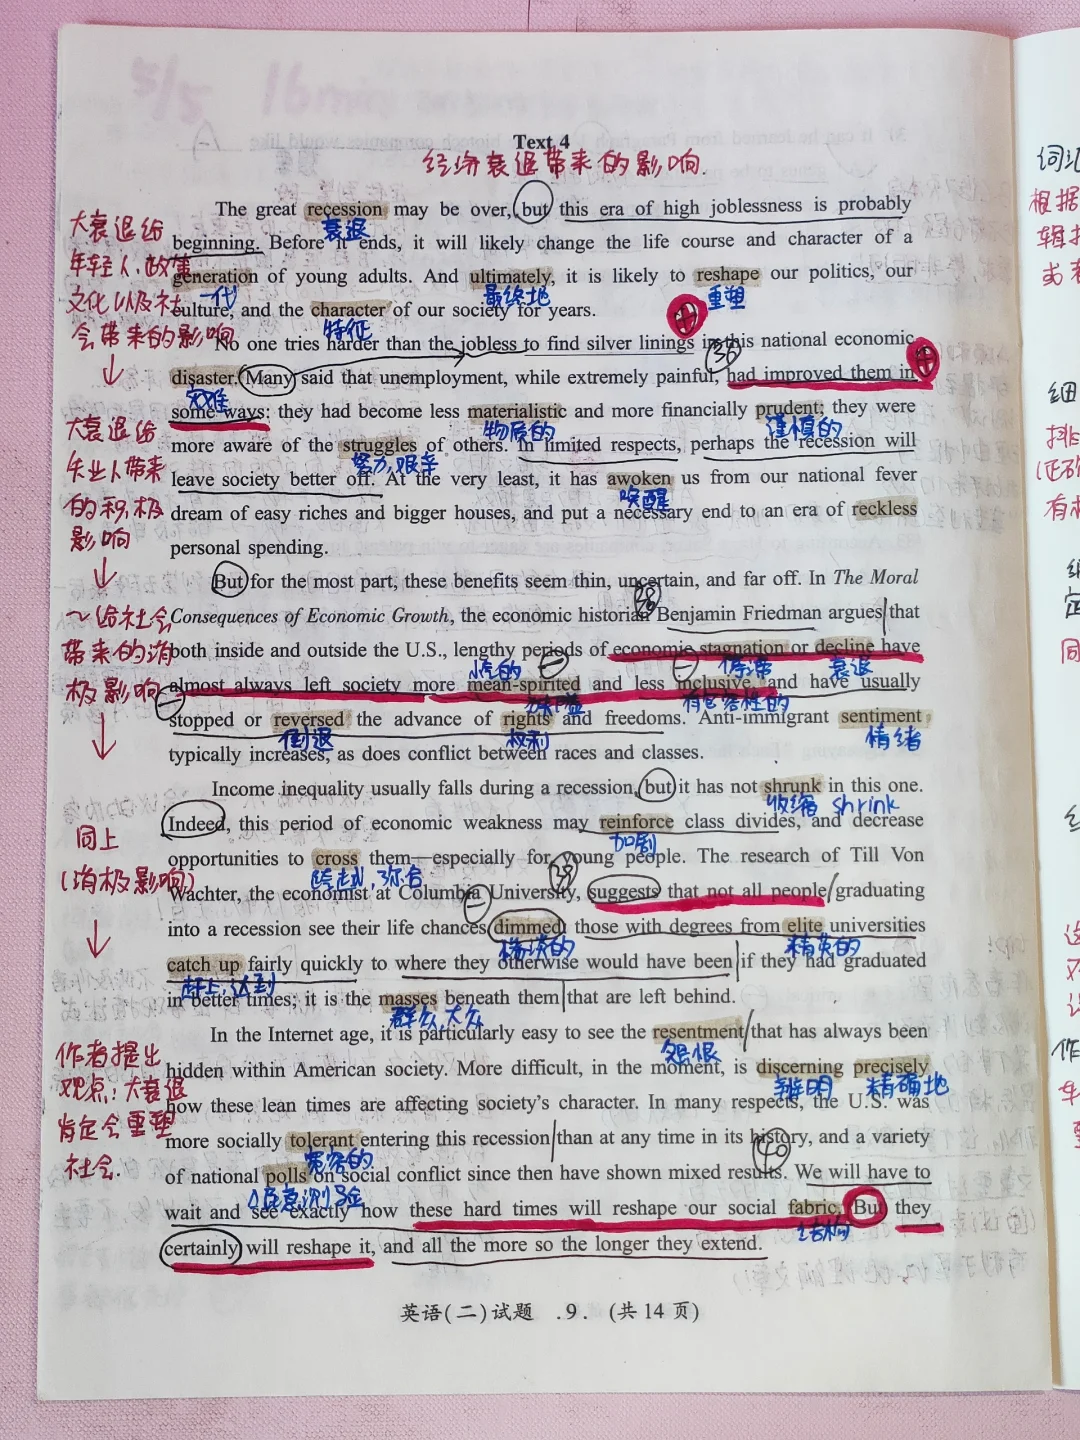 5/5 16min
Text 4
经济衰退带来的影响.
The great recession may be over, but this era of high joblessness is probably
衰退
beginning. Before it ends, it will likely change the life course and character of a
generation of young adults. And ultimately, it is likely to reshape our politics, our
一代 最终地 重塑
culture, and the character of our society for years.
特征
大衰退给
年轻人、政策
文化以及社
会带来的影响
↓
No one tries harder than the jobless to find silver linings in this national economic
36
disaster. Many said that unemployment, while extremely painful, had improved them in
灾难
some ways: they had become less materialistic and more financially prudent; they were
物质的 谨慎的
more aware of the struggles of others. In limited respects, perhaps the recession will
努力,艰辛
leave society better off. At the very least, it has awoken us from our national fever
唤醒
dream of easy riches and bigger houses, and put a necessary end to an era of reckless
personal spending.
大衰退给
失业人带来
的积极
影响
↓
But for the most part, these benefits seem thin, uncertain, and far off. In The Moral
Consequences of Economic Growth, the economic historian Benjamin Friedman argues that
both inside and outside the U.S., lengthy periods of economic stagnation or decline have
停滞 衰退
almost always left society more mean-spirited and less inclusive and have usually
有包容性的
stopped or reversed the advance of rights and freedoms. Anti-immigrant sentiment
倒退 权利 情绪
typically increases, as does conflict between races and classes.
~给社会
带来的消
极影响
↓
Income inequality usually falls during a recession, but it has not shrunk in this one.
收缩 shrink
Indeed, this period of economic weakness may reinforce class divides, and decrease
加剧
opportunities to cross them—especially for young people. The research of Till Von
Wachter, the economist at Columbia University, suggests that not all people graduating
39
into a recession see their life chances dimmed: those with degrees from elite universities
精英的
catch up fairly quickly to where they otherwise would have been if they had graduated
赶上,达到
in better times; it is the masses beneath them that are left behind.
群众,大众
同上
(消极影响)
↓
In the Internet age, it is particularly easy to see the resentment that has always been
怨恨
hidden within American society. More difficult, in the moment, is discerning precisely
辨明 精确地
how these lean times are affecting society's character. In many respects, the U.S. was
more socially tolerant entering this recession than at any time in its history, and a variety
宽容的 40
of national polls on social conflict since then have shown mixed results. We will have to
wait and see exactly how these hard times will reshape our social fabric. But they
结构
certainly will reshape it, and all the more so the longer they extend.
作者提出
观点:大衰退
肯定会重塑
社会.
英语(二)试题 .9. (共14页)